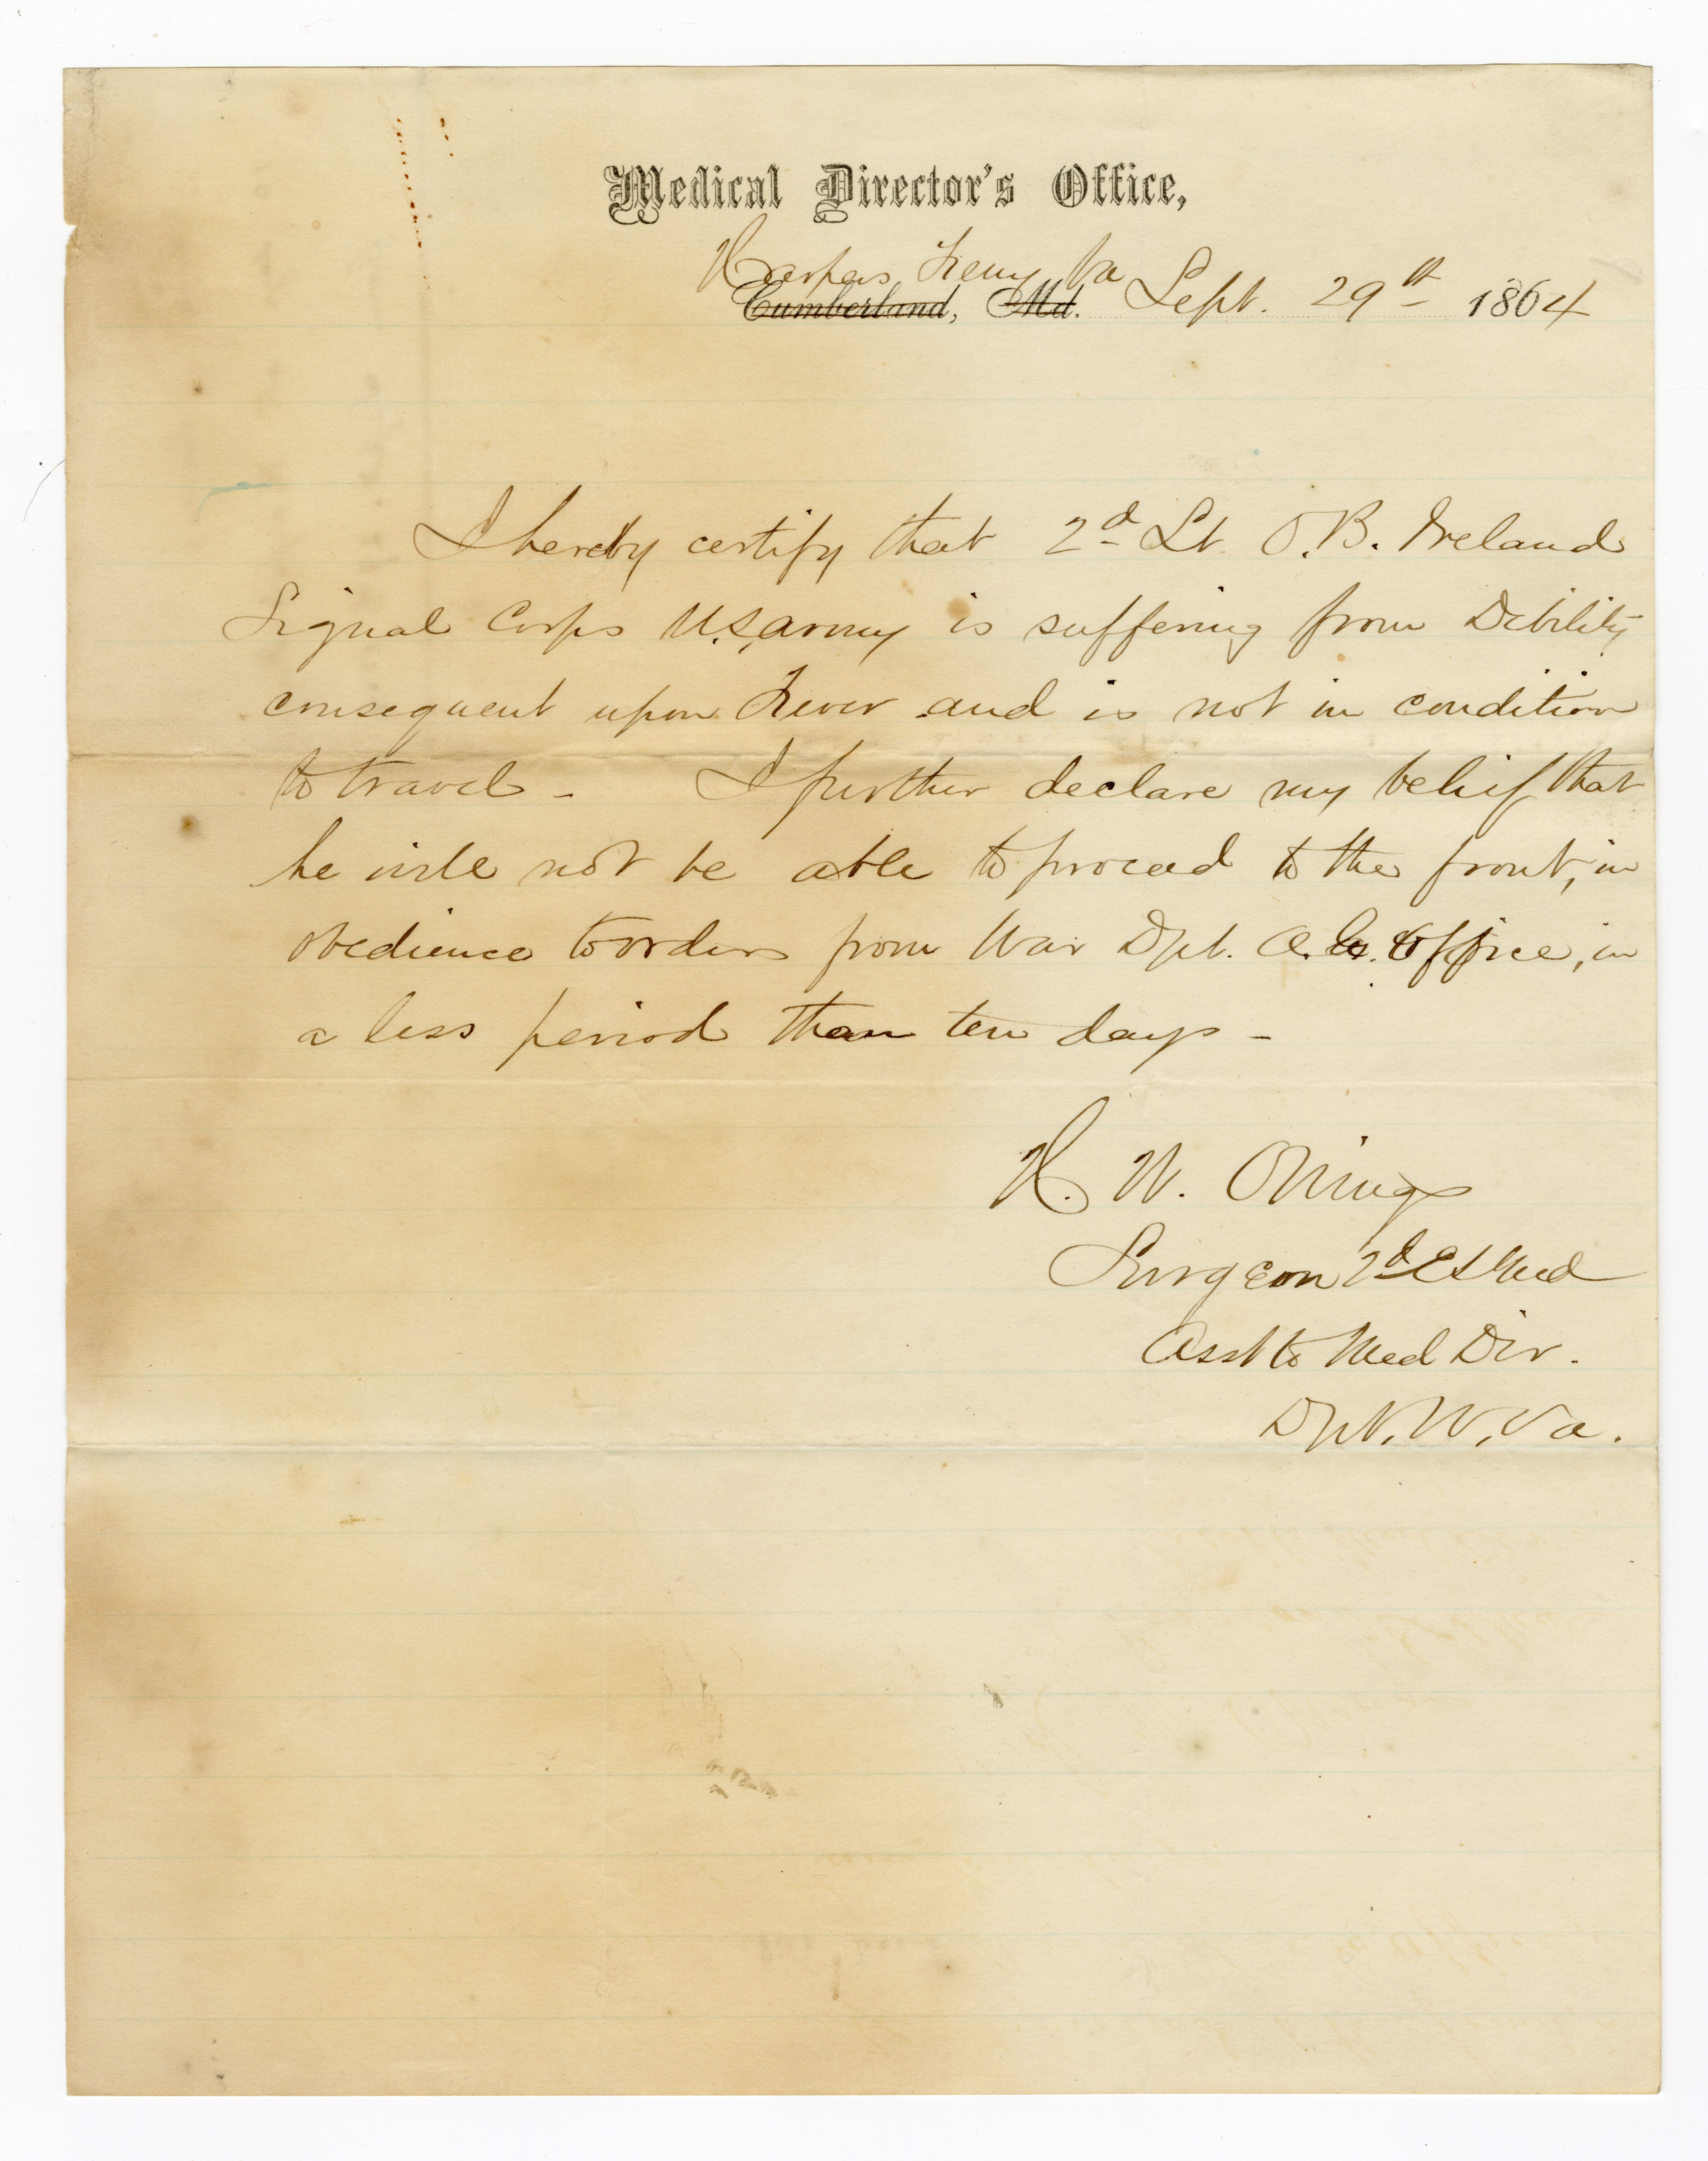 Medical Director's Office,
Harpers Ferry Va
Cumberland, Md. Sept. 29th 1864
I hereby certify that 2d Lt. O.B. Ireland
Signal Corps U.S. Army is suffering from Debility
consequent upon Fever and is not in condition
to travel - I further declare my belief that
he will not be able to proceed to the front, in
obedience to orders from War Dpt. A. G. Office, in
a less period than ten days -
H. W. Owings
Surgeon 2d ES Med
Asst to Med Dir.
Dpt. W. Va.